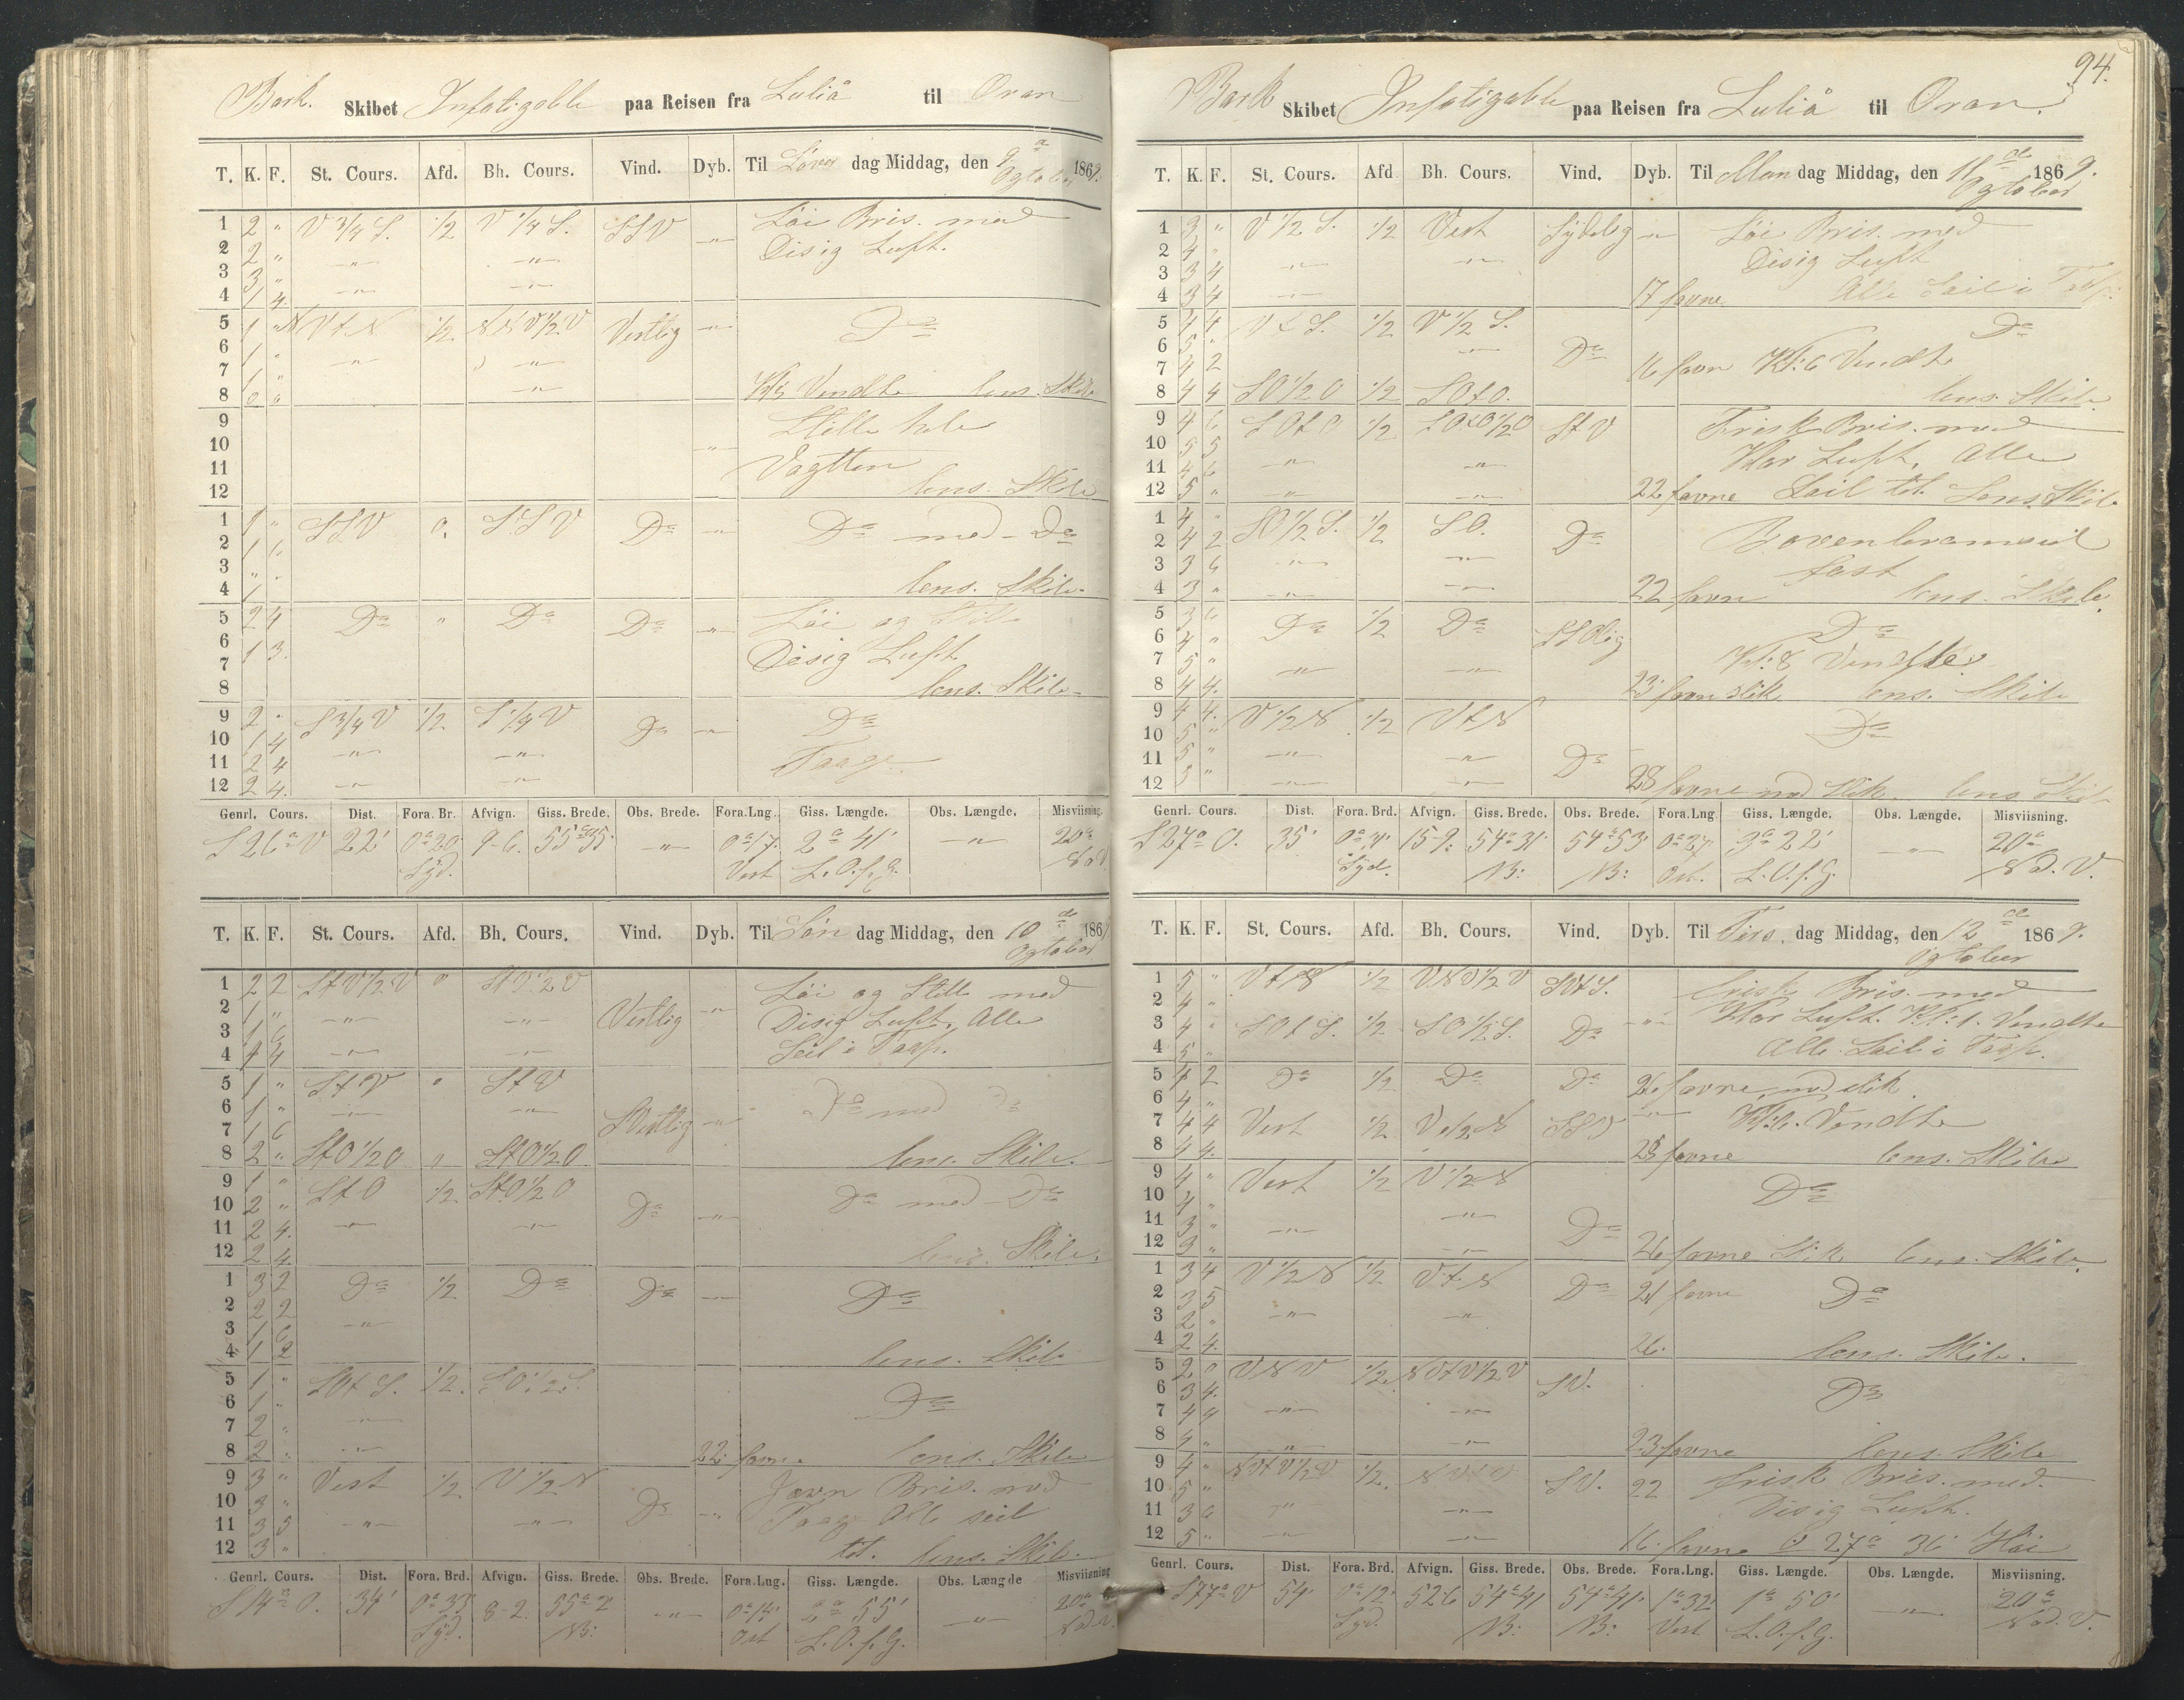 Bark. Skibet Infatigable paa Reisen fra Luliå til Oran
T. K. F. St. Cours. Afd. Bh. Cours. Vind. Dyb. Til Löver dag Middag, den 9de Ogtober 1869.
1 2 " V 3/4 S. 1/2 V 1/4 S. SSV —"— Löi Bris. med
2 2 " —"— —"— Disig Luft.
3 3 " —"— —"—
4 1 4.
5 1 " NVtN 1/2 NNV1/2V Vestlig —"— Da
6 1 " —"— —"—
7 1 "
8 0 6 —"— Vendte lens. Skib
9 Stille hele
10 —"—
11 Vagtten
12 lens. Skib
1 1 " SSV 0. SSV Da —"— Da med - Da
2 1 6
3 " "
4 1 lens. Skib.
5 2 4 Da " Da Da —"— Löi og Stille
6 1 3. Disig Luft
7
8 lens. Skib
9 2 " S 3/4 V 1/2 S 1/4 V Da —"— Da
10 1 4
11 2 4 —"— —"— Taage
12 2 4. —"— —"—
Genrl. Cours. Dist. Fora. Br. Afvign. Giss. Brede. Obs. Brede. Fora. Lng. Giss. Længde. Obs. Længde. Misviisning.
S 26° V 22' 0° 20' Syd. 9-6. 55° 35' —"— 0° 17' Vest 2° 41' L. O. f. G. —"— 20°
T. K. F. St. Cours. Afd. Bh. Cours. Vind. Dyb. Til Sön dag Middag, den 10de Ogtober 1869
1 2 2 StV1/2V " Vestlig —"— Löi og Stille med
2 1 " —"— —"— Disig Luft, Alle
3 1 6
4 4 —"— —"— Seil i Top.
5 1 " StV " StV SVestlig —"— Da med Da
6 1 " —"— —"—
7 1 6
8 2 " StO1/2O " StO1/2O lens. Skib.
9 1 " StO 1/2 StO1/2O Da —"— Da med - Da
10 2 "
11 2 4. —"— —"—
12 2 4 lens. Skib.
1 3 2 Da 1/2 Da Da —"— Da
2 2 2
3 1 6 —"—
4 1 2 lens. Skib
5 1 " SOtS. 1/2. SO1/2S. Da
6 1 "
7 2 " —"—
8 2 " —"— 22 favne lens. Skib
9 3 " Vest 1/2 V 1/2 N Da —"— Jævn Bris. med
10 3 "
11 3 5 —"— —"— Taage Alle seil
12 3 " til. lens. Skib.
Genrl. Cours. Dist. Fora. Brd. Afvign. Giss. Brede. Obs. Brede. Fora. Lng. Giss. Længde. Obs. Længde Misviisning
S 14° O. 34' 0° 33' Syd. 8-2. 55° 2' N: —"— Ost 2° 55' L. O. f. G. —"— 20°
94.
Bark Skibet Infatigable paa Reisen fra Luliå til Oran.
T. K. F. St. Cours. Afd Bh. Cours. Vind. Dyb. Til Man dag Middag, den 11de Ogtober 1869.
1 3 " V 1/2 S. 1/2 Vest Sydelig —"— Löi Bris. med
2 4 " —"— —"— Disig Luft
3 3 4
4 3 4 —"— 17 favne Alle Seil i Top.
5 4 4 VtS. 1/2 V 1/2 S. Da
6 5 " —"— Da
7 4 2 16 favn Kl: 6 Vendte
8 4 4 SO 1/2 O 1/2 SOtO. lens. Skib.
9 4 6 SOtO 1/2 SOtO1/2O StV Frisk Bris. med
10 5 5 Klar Luft, Alle
11 4 6 —"— —"—
12 5 " —"— —"— 22 favne Seil til. Lens. Skib
1 4 " SO1/2S. 1/2 SO. Da Bovenbramseil
2 4 2
3 3 6 —"— —"— fast
4 3 " —"— —"— 22 favn lens. Skib.
5 3 6 Da 1/2 Da SSOlig Da
6 4 "
7 5 " —"— —"— Kl: 8 Vendte
8 4 4. 23 favn slik lens. Skib
9 4 4. V 1/2 N 1/2 VtN Da
10 5 "
11 5 " —"— —"— Da
12 3 " —"— —"— 28 favne med Slik lens Skib
Genrl. Cours. Dist. Fora. Brd. Afvign. Giss. Brede. Obs. Brede. Fora. Lng. Giss. Længde. Obs. Længde. Misviisning.
S 27° O. 35' 0° 31' Syd. 15-9. 54° 31' N: 54° 53' N: 0° 27' Ost. 3° 22' L. O. f. G. —"— 20° Nd. V.
T. K. F. St. Cours. Afd. Bh. Cours. Vind. Dyb. Til Tirs. dag Middag, den 12de Ogtober 1869.
1 5 " VtN 1/2 VNV1/2V SVtS. frisk Bris. med
2 4 " Klar Luft. Kl: 1. Vendte
3 4 " SOtS. 1/2 SO1/2S. Da —"—
4 5 " Alle Seil i Top.
5 4 2 Da 1/2 Da Da 26. favne med slik
6 4 " —"—
7 4 4 Vest 1/2 V 1/2 N SSV Kl: 6. Vendte
8 4 4. 28 favne lens. Skib
9 4 " Vest 1/2 V 1/2 N Da
10 4 "
11 3 " —"— —"— Da
12 3 " —"— 26 favne Slik lens. Skib.
1 3 4 V 1/2 N 1/2 VtN Da 21 favne Da
2 3 5
3 2 " —"— —"—
4 2 4. 26. lens. Skib.
5 2 0 VNV 1/2. NVtV1/2V SV. Da
6 3 4.
7 4 4 —"— —"—
8 4 " —"— —"— 23 favne lens. Skib
9 4 " NVtV1/2V 1/2. NVtV SV. 22 frisk Bris. med
10 5 "
11 3 6 —"— —"— Disig Luft.
12 5 " —"— —"— 16. favne 27° 36'
Genrl. Cours. Dist. Fora. Brd. Afvign. Giss. Brede. Obs. Brede. Fora. Lng. Giss. Længde. Obs. Længde. Misviisning.
S 77° V 54' 0° 12' Syd. 52-6 54° 41' N: 54° 41' N: 1° 32' Vest 1° 50' L. O. f. G. —"— 20° Nd. V.